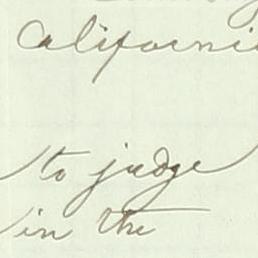 Californi
to judge
in the